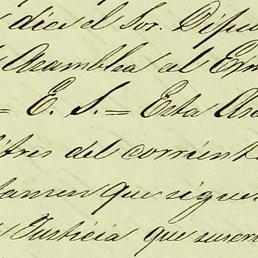 dice el Sor. Dipu
Asamblea al Exm
= E. S. = Esta As
tres del corriente
tamen que sigue
Justicia que suscri